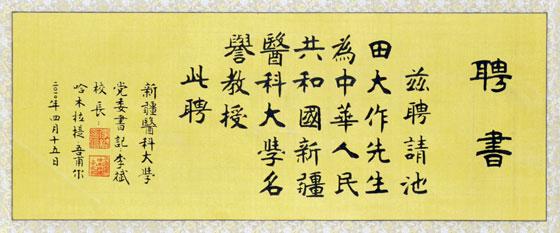 聘書
茲聘請池
田大作先生
為中華人民
共和國新疆
醫科大學名
譽教授
此聘
新疆醫科大學
党委書記:李斌
校長:
哈木拉提·吾甫尔
二〇一〇年四月十五日